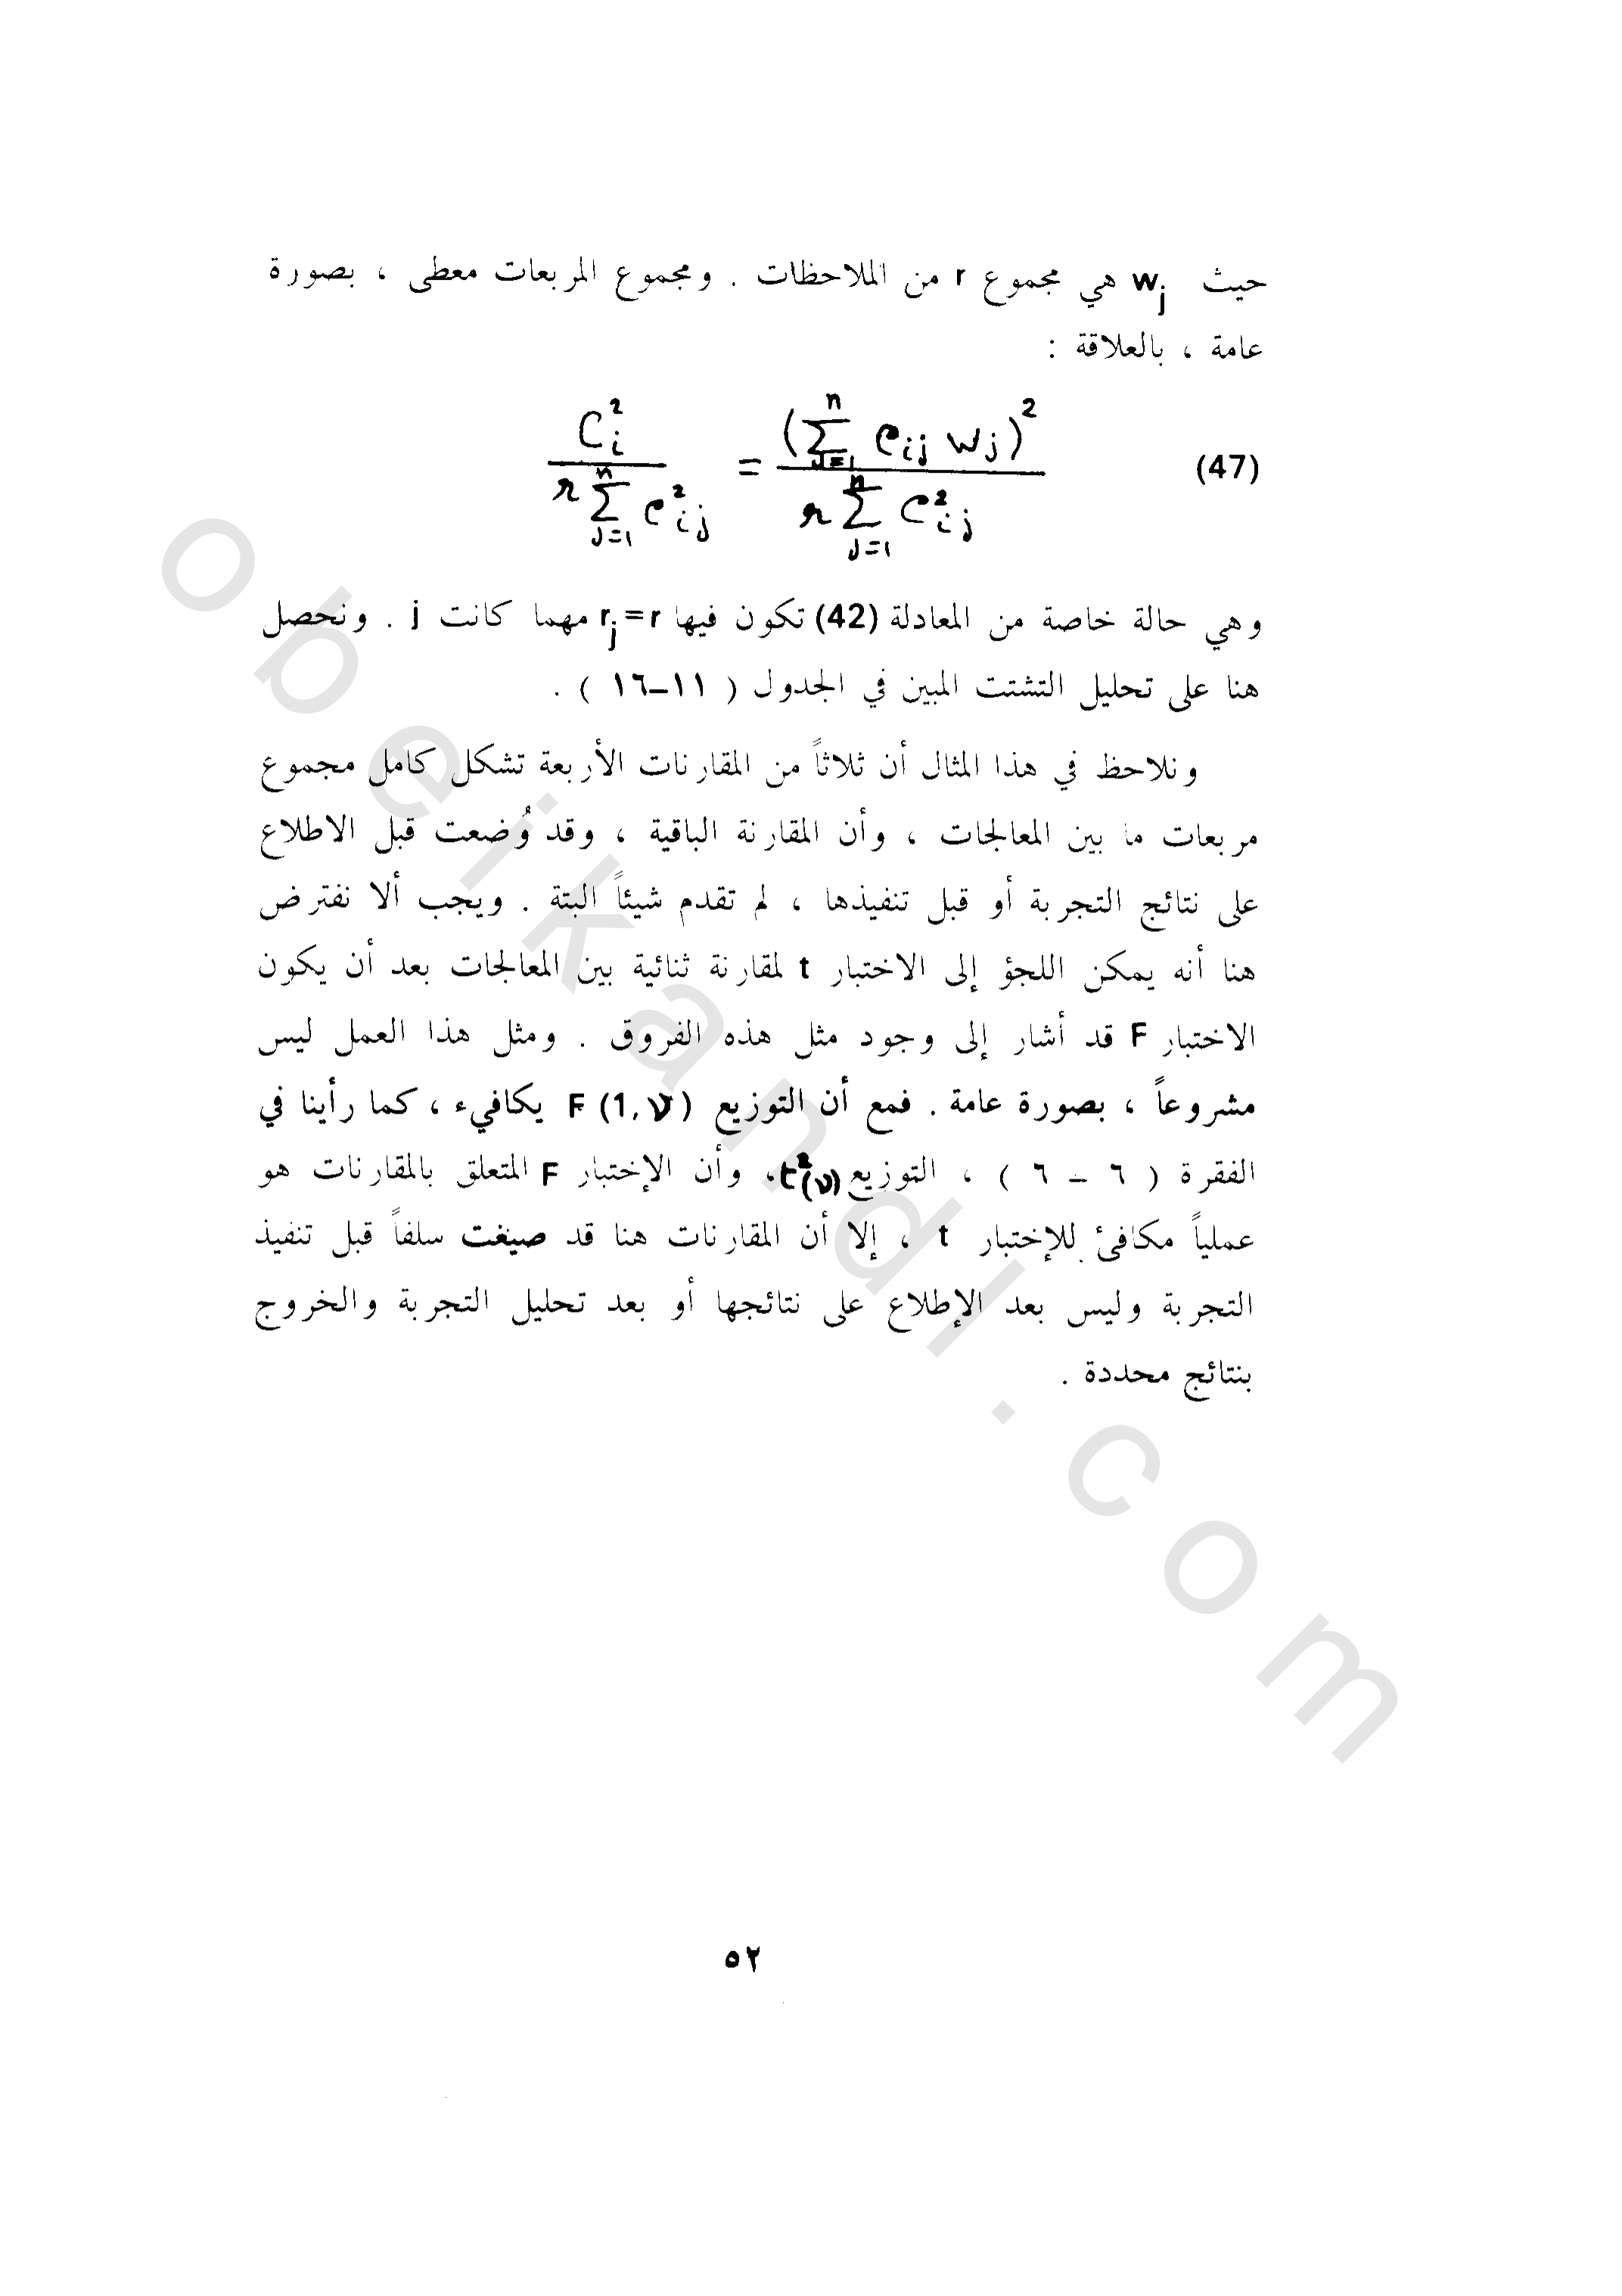 حيث w_j هي مجموع r من الملاحظات . ومجموع المربعات معطى ، بصورة
عامة ، بالعلاقة :
\frac{C_i^2}{r \sum_{j=1}^{n} c_{ij}^2} = \frac{(\sum_{j=1}^{n} c_{ij} w_j)^2}{r \sum_{j=1}^{n} c_{ij}^2} (47)
وهي حالة خاصة من المعادلة (42) تكون فيها r_j=r مهما كانت j . ونحصل
هنا على تحليل التشتت المبين في الجدول ( ١١–١٦ ) .
ونلاحظ في هذا المثال أن ثلاثاً من المقارنات الأربعة تشكل كامل مجموع
مربعات ما بين المعالجات ، وأن المقارنة الباقية ، وقد وُضعت قبل الاطلاع
على نتائج التجربة أو قبل تنفيذها ، لم تقدم شيئاً البتة . ويجب ألا نفترض
هنا أنه يمكن اللجؤ إلى الاختبار t لمقارنة ثنائية بين المعالجات بعد أن يكون
الاختبار F قد أشار إلى وجود مثل هذه الفروق . ومثل هذا العمل ليس
مشروعاً ، بصورة عامة . فمع أن التوزيع F (1, ν) يكافيء ، كما رأينا في
الفقرة ( ٦ – ٦ ) ، التوزيع t²(ν)، وأن الإختبار F المتعلق بالمقارنات هو
عملياً مكافئ للإختبار t ، إلا أن المقارنات هنا قد صيغت سلفاً قبل تنفيذ
التجربة وليس بعد الإطلاع على نتائجها أو بعد تحليل التجربة والخروج
بنتائج محددة .
٥٢
obeikandl.com